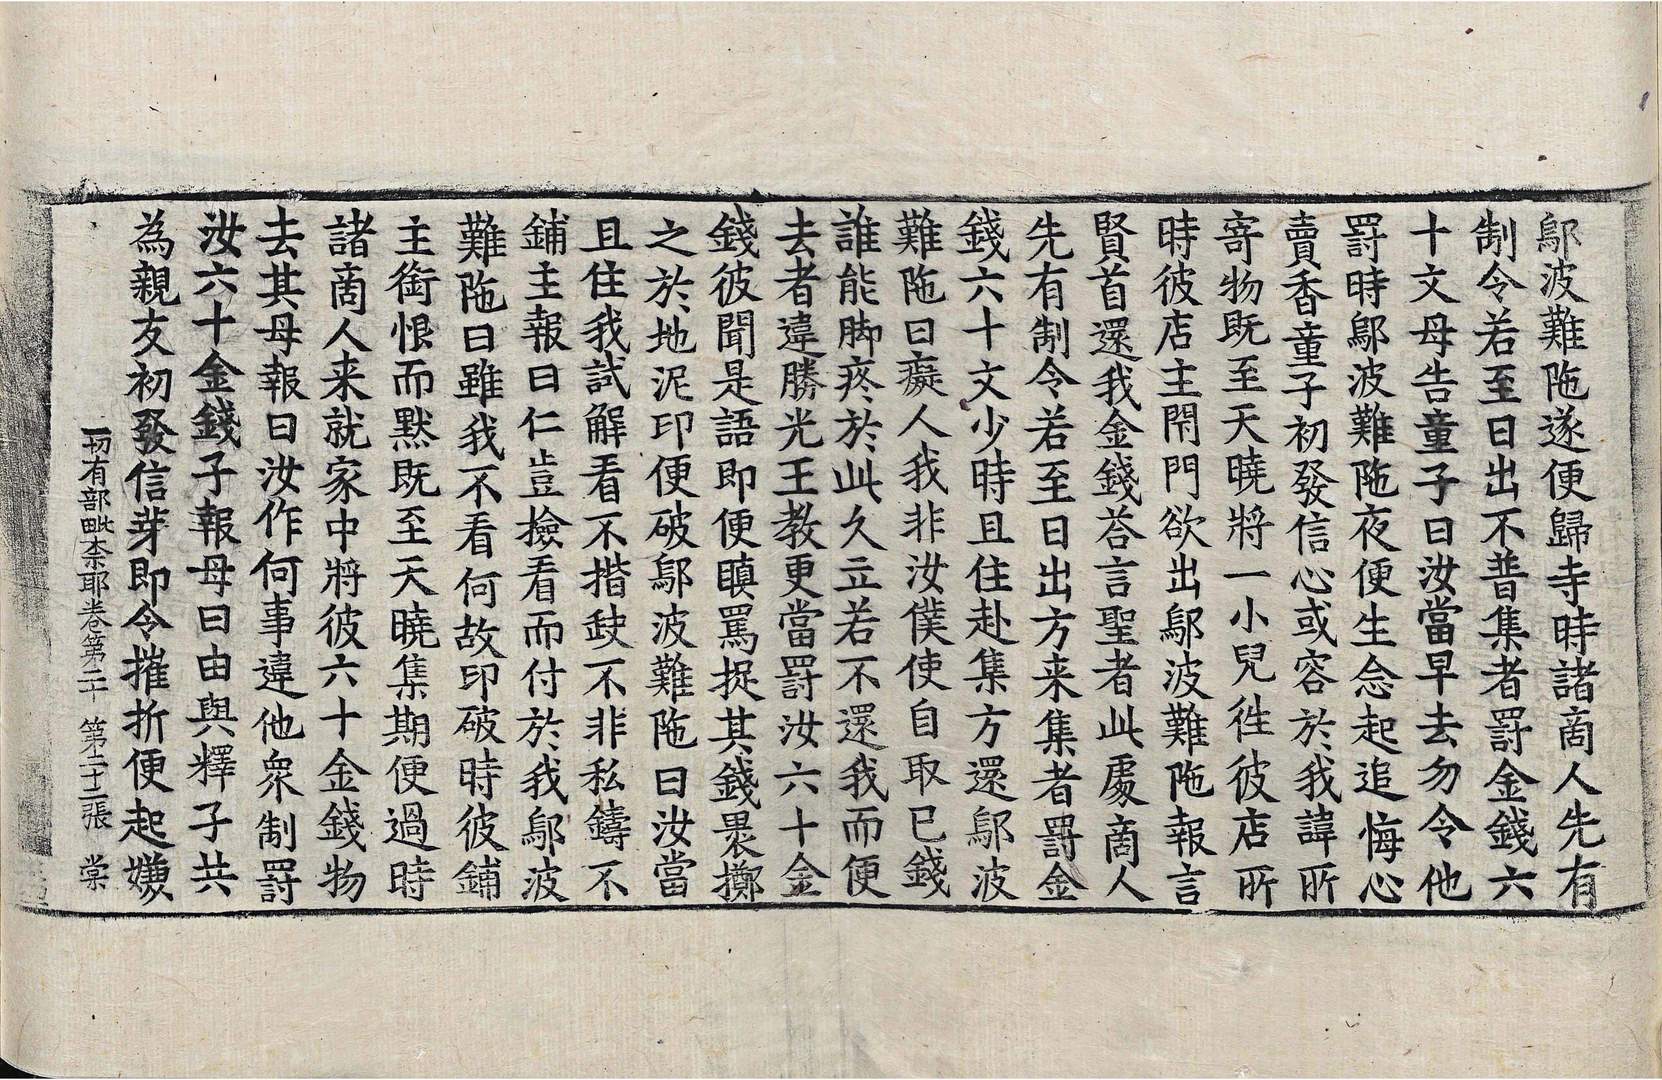 鄔波難陁遂便歸寺時諸啇人先有
制令若至日出不普集者罰金錢六
十文母告童子曰汝當早去勿令他
罰時鄔波難陁夜便生念起追悔心
賣香童子初發信心或容於我諱所
寄物旣至天曉將一小兒徃彼店所
時彼店主閇門欲出鄔波難陁報言
賢首還我金錢荅言聖者此處啇人
先有制令若至日出方来集者罰金
錢六十文少時且住赴集方還鄔波
難陁曰癡人我非汝僕使自取已錢
誰能脚疼於此久立若不還我而便
去者違勝光王教更當罰汝六十金
錢彼聞是語即便瞋罵捉其錢褁擲
之於地泥印便破鄔波難陁曰汝當
且住我試解看不揩𡙇不非私鑄不
鋪主報曰仁豈撿看而付於我鄔波
難陁曰雖我不看何故印破時彼鋪
主銜恨而默旣至天曉集期便過時
諸啇人来就家中將彼六十金錢物
去其母報曰汝作何事違他衆制罰
汝六十金錢子報母曰由與釋子共
為親友初發信芽即令摧折便起嫌
一切有部毗柰耶卷第二十　第二十二張　棠